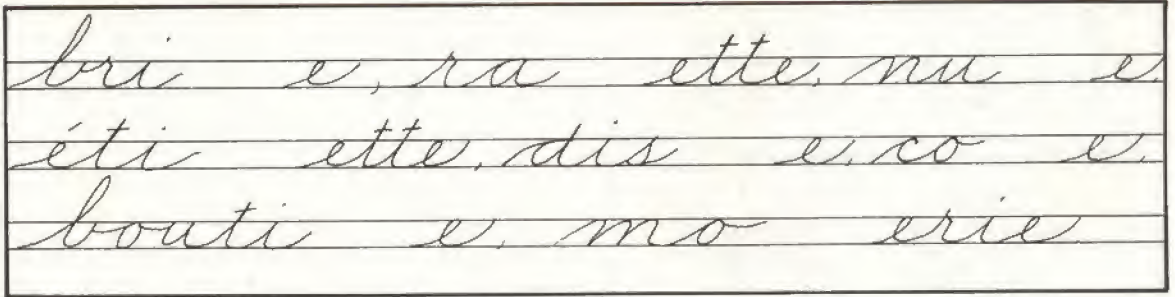 bri e, ra ette, nu e,
éti ette, dis e, co e,
bouti e, mo erie